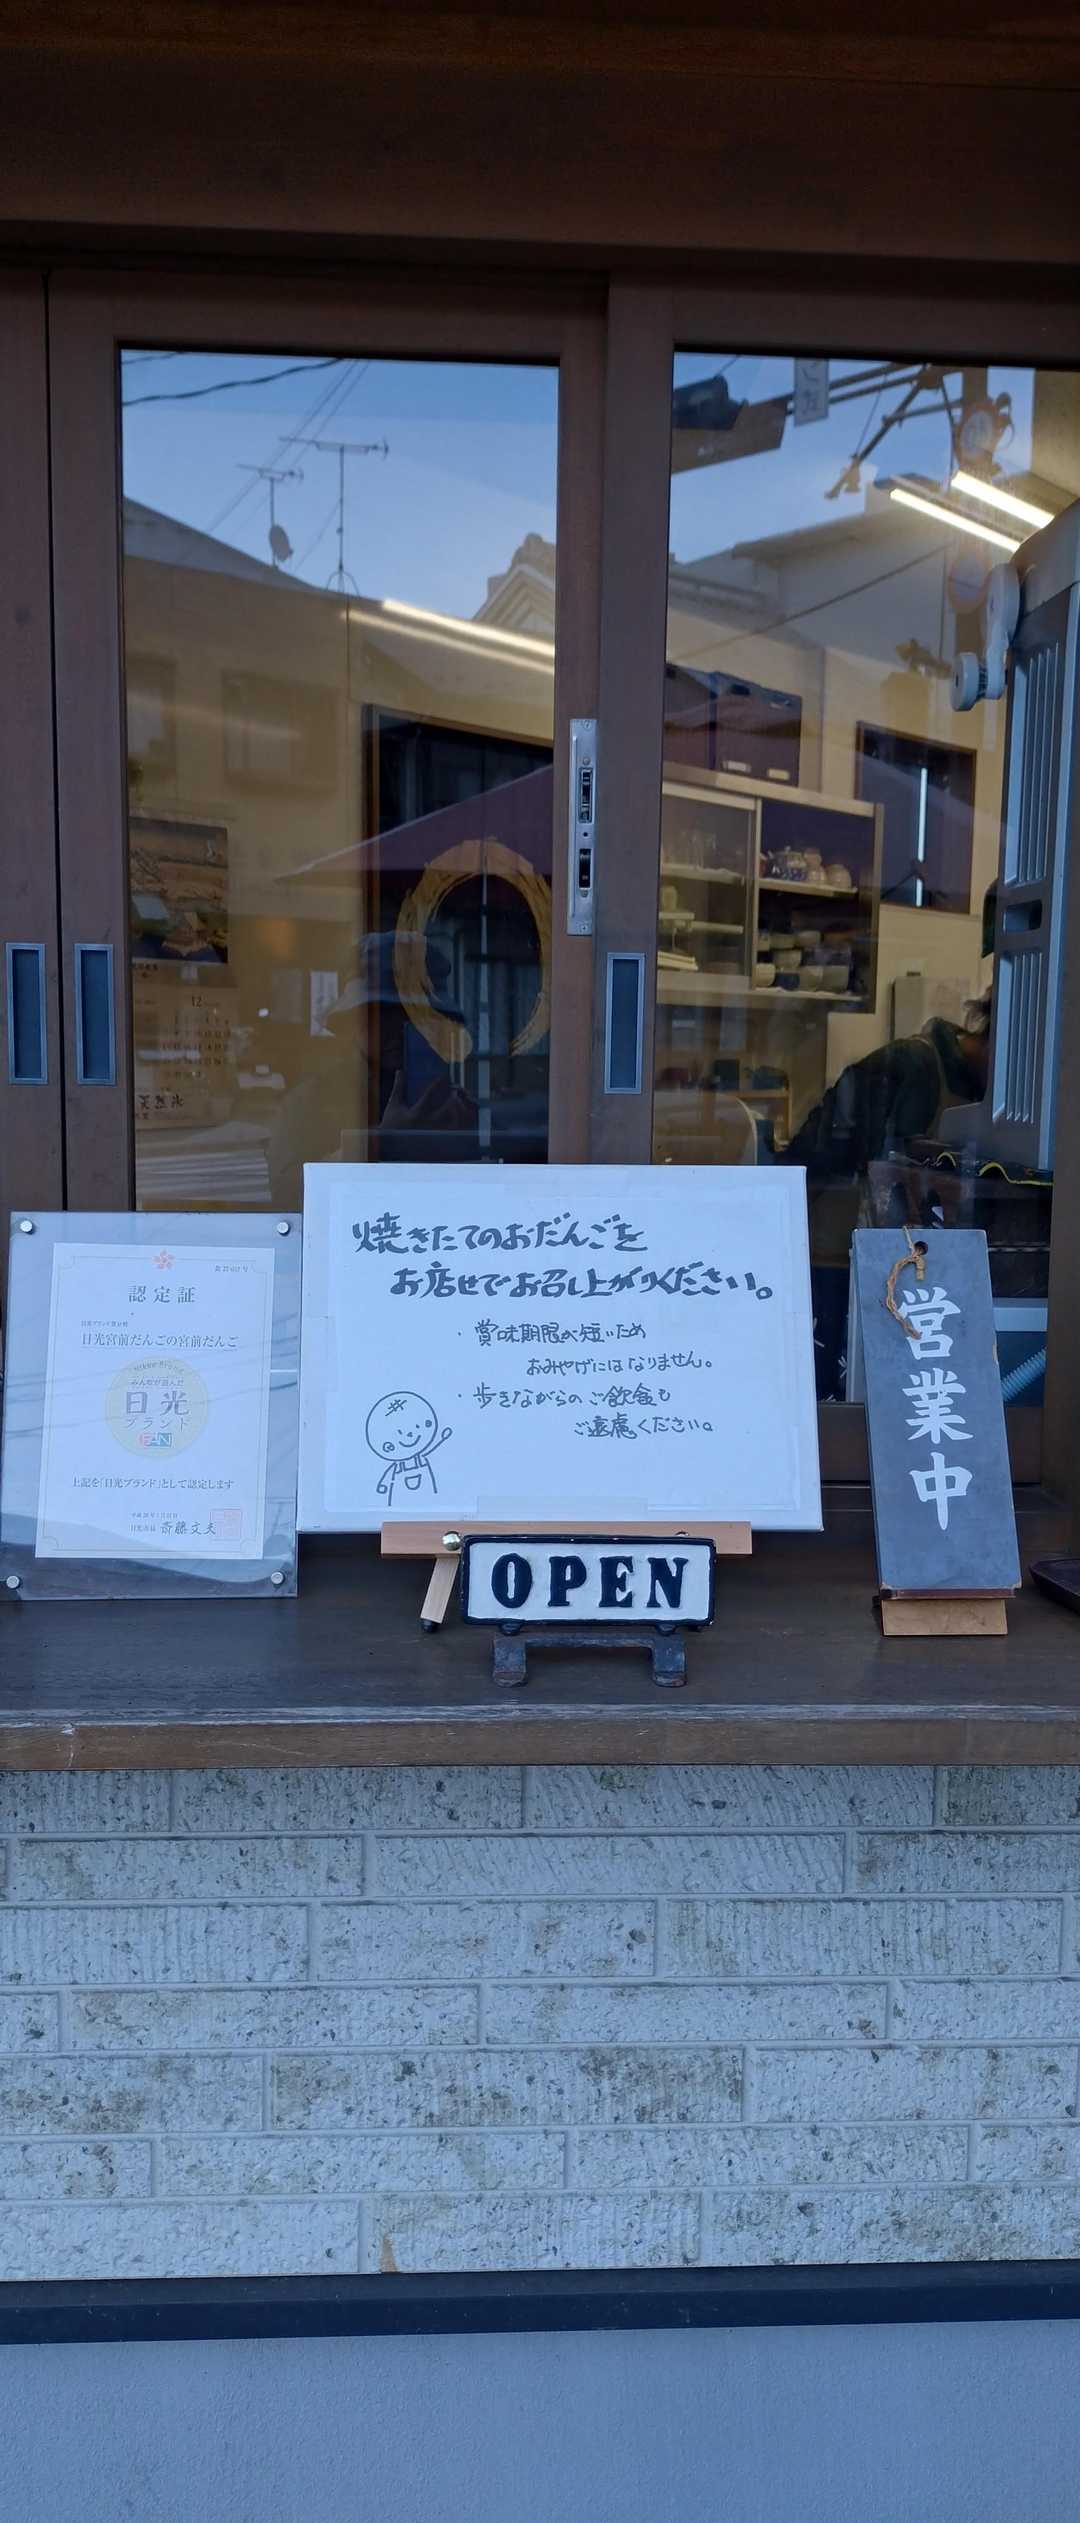 認定証
日光宮前だんごの宮前だんご
Nikko Brand
みんなが選んだ
日光
ブランド
FAN
上記を「日光ブランド」として認定します
日光市長 斎藤文夫
焼きたてのおだんごを
お店せでお召し上がりください。
・賞味期限が短いため
おみやげにはなりません。
・歩きながらのご飲食も
ご遠慮ください。
OPEN
営業中
12
天然氷